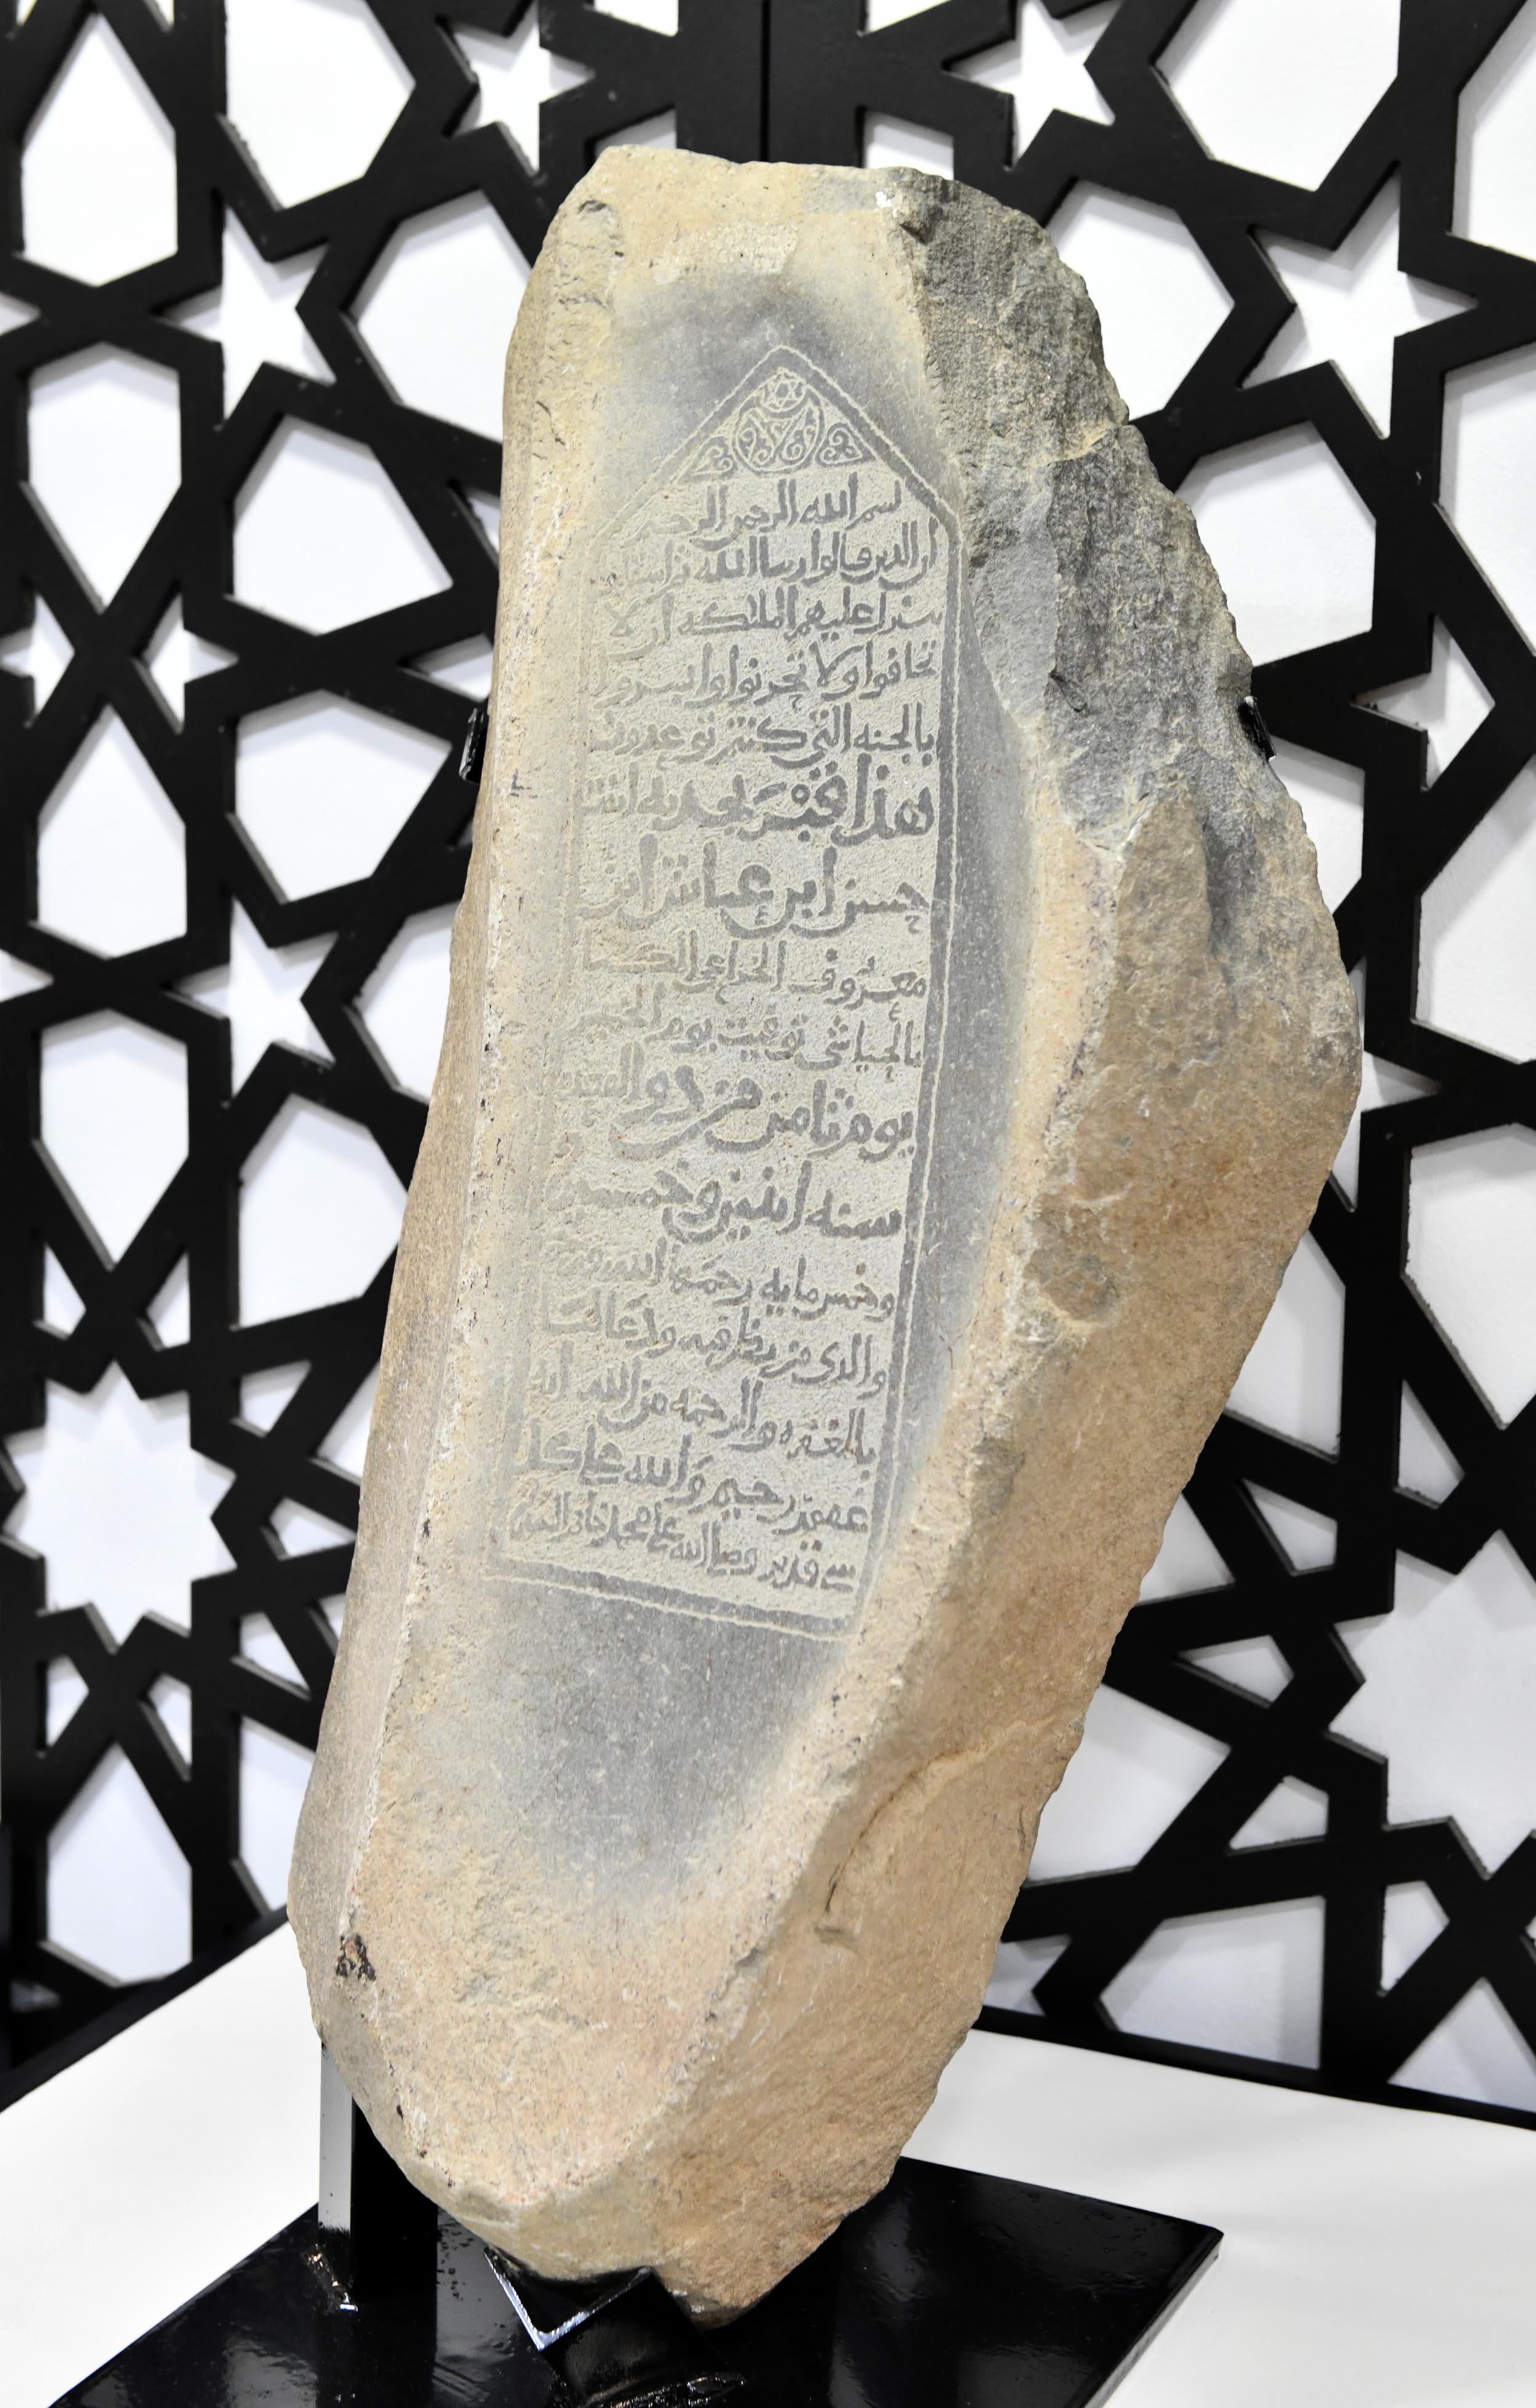 بسم الله الرحمن الرحيم
ان الذين قالوا ربنا الله ثم
تتنزل عليهم الملئكه ان لا
تخافوا ولا تحزنوا وابشروا
بالجنه التي كنتم توعدون
هذا قبر
حسن ابن عباس ابن
معروف
توفيت يوم الخميس
يوم ثامن من ذو القعده
سنه اثنين وخمسين
وخمس مايه رحمة الله
والدي من ودعا لها
بالمغفره والرحمه من الله انه
غفور رحيم والله على كل
شي قدير وصلى الله على محمد خاتم